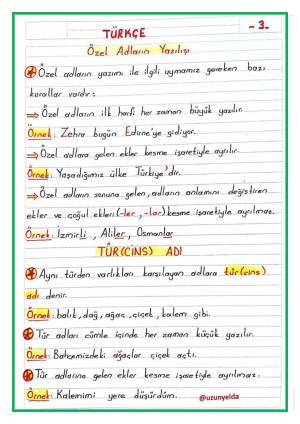 TÜRKÇE
- 3 -
Özel Adların Yazılışı
Özel adların yazımı ile ilgili uymamız gereken bazı
kurallar vardır:
⇒ Özel adların ilk harfi her zaman büyük yazılır.
Örnek: Zehra bugün Edirne'ye gidiyor.
⇒ Özel adlara gelen ekler kesme işaretiyle ayrılır.
Örnek: Yaşadığımız ülke Türkiye'dir.
⇒ Özel adların sonuna gelen, adların anlamını değiştiren
ekler ve çoğul ekleri (-ler, -lar) kesme işaretiyle ayrılmaz.
Örnek: İzmirli, Aliler, Osmanlar
TÜR(CİNS) ADI
Aynı türden varlıkları karşılayan adlara tür(cins)
adı denir.
Örnek: balık, dağ, ağaç, çiçek, kalem gibi.
Tür adları cümle içinde her zaman küçük yazılır.
Örnek: Bahçemizdeki ağaçlar çiçek açtı.
Tür adlarına gelen ekler kesme işaretiyle ayrılmaz.
Örnek: Kalemimi yere düşürdüm.
@uzunyelda